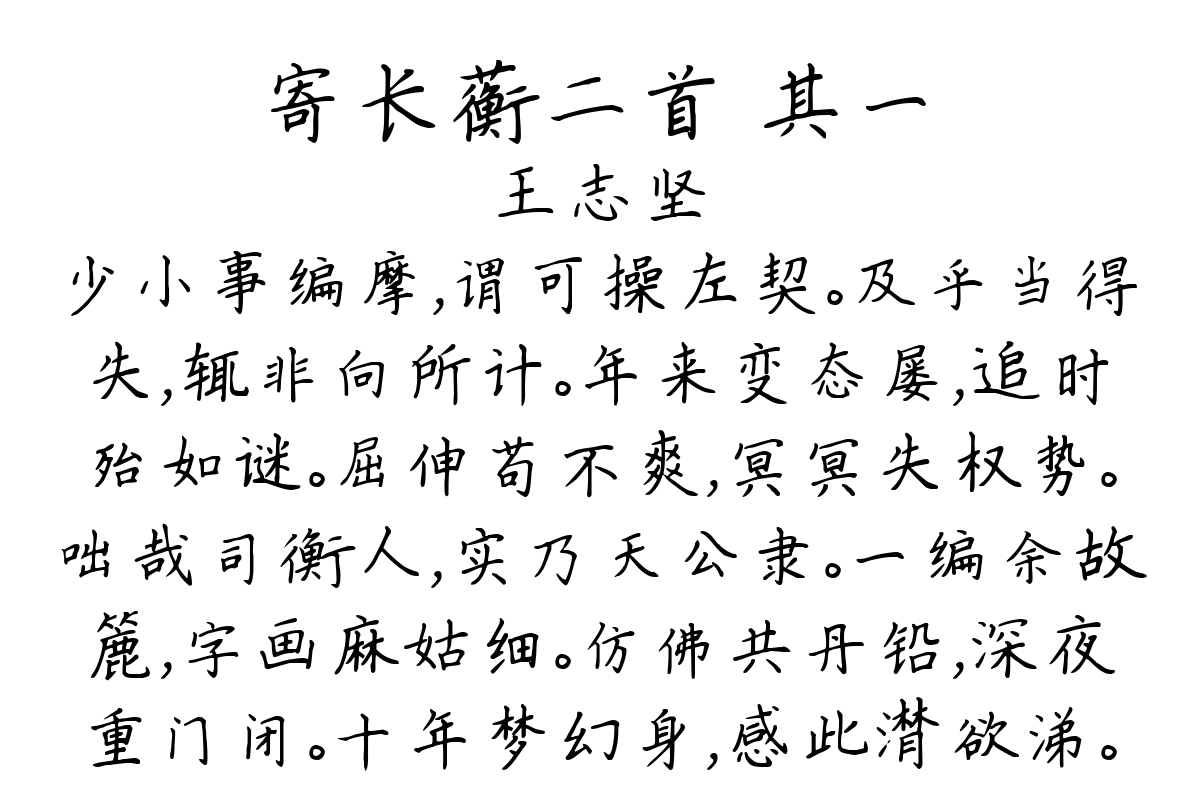 寄长蘅二首 其一
王志坚
少小事编摩,谓可操左契。及乎当得
失,辄非向所计。年来变态屡,追时
殆如谜。屈伸苟不爽,冥冥失权势。
咄哉司衡人,实乃天公隶。一编余故
簏,字画麻姑细。仿佛共丹铅,深夜
重门闭。十年梦幻身,感此潸欲涕。